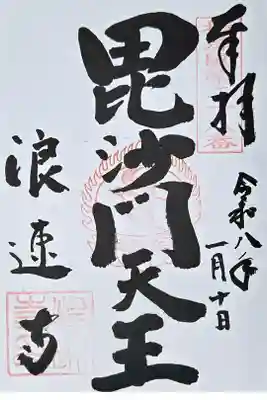 奉拝
令和八年
一月十日
毘沙門天王
浪速寺